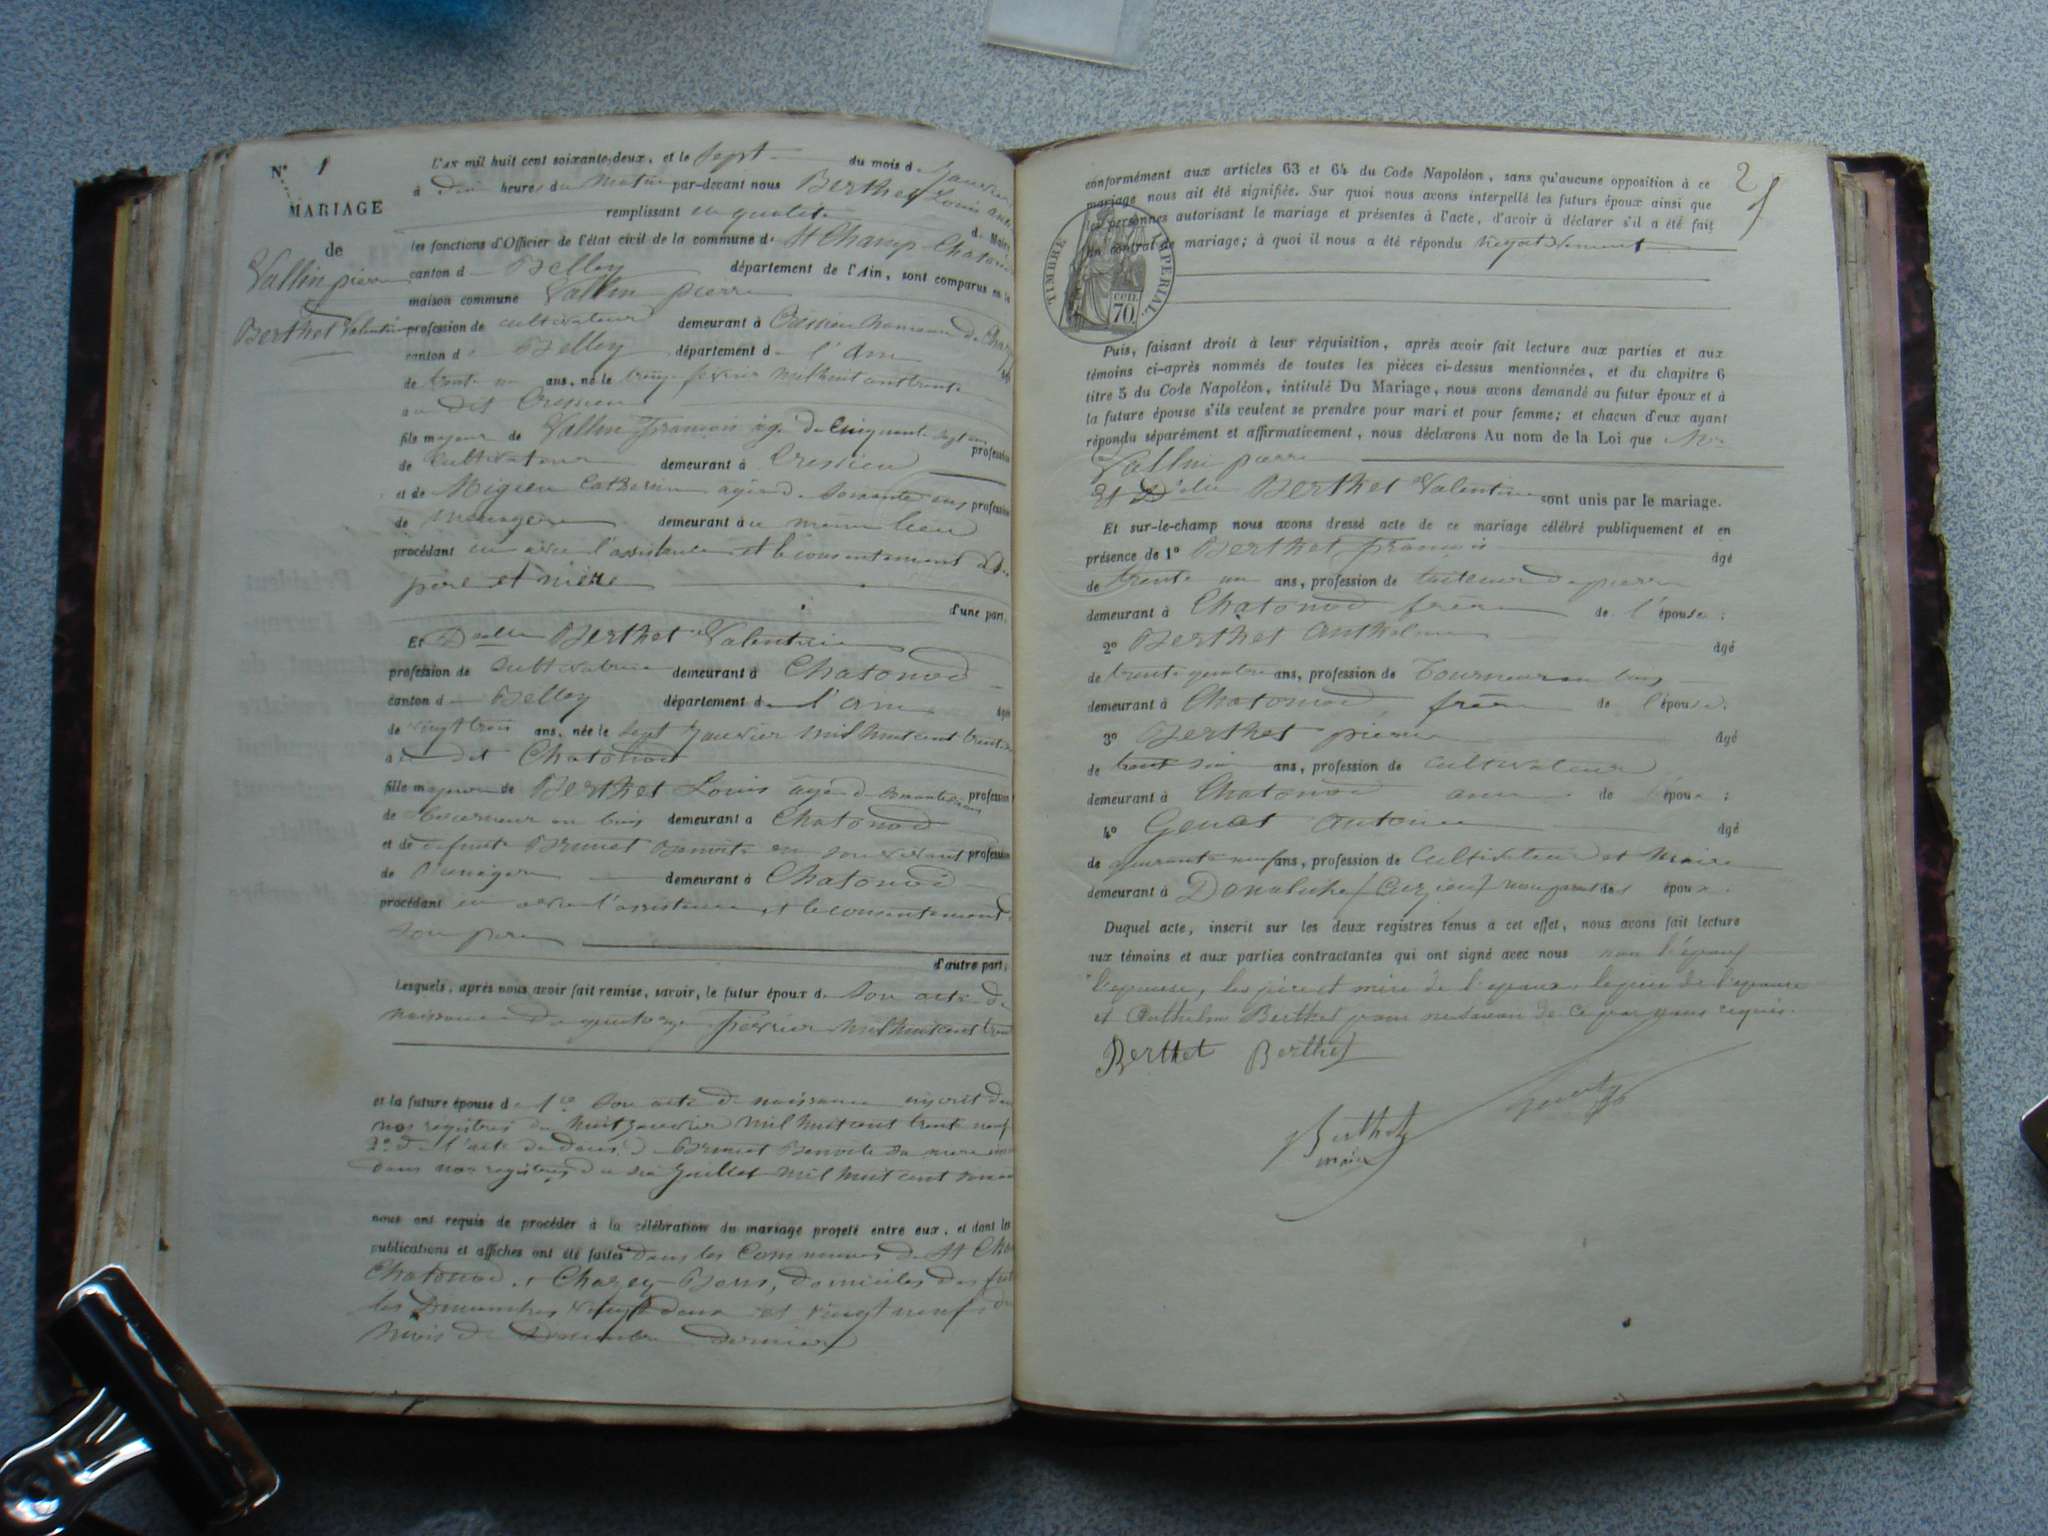 N° 1
MARIAGE
de
Vallin pierre
Berthet Valentine
L'an mil huit cent soixante-deux, et le sept du mois de Janvier
à dix heures du Matin par-devant nous Berthet Louis
remplissant en qualité de Maire
les fonctions d'Officier de l'état civil de la commune de St Champ-Chatonod
canton de Belley département de l'Ain, sont comparus en la
maison commune Vallin pierre
profession de cultivateur demeurant à Cressieu hameau de
canton de Belley département de l'Ain âgé
de trente un ans, né le treize fevrier mil huit cent trente
au dit Cressieu
fils majeur de Vallin François âgé de Cinquante sept ans profession
de Cultivateur demeurant à Cressieu
et de Migieu Catherine agée de soixante ans profession
de menagere demeurant au meme lieu
procédant en avec l'assistance et le consentement de ses
pere et mère
d'une part,
Et Delle Berthet Valentine
profession de cultivatrice demeurant à Chatonod
canton de Belley département de l'ain âgée
de vingt trois ans, née le sept Janvier mil huit cent trente
au dit Chatonod
fille majeure de Berthet Louis agé de profession
de tourneur en bois demeurant à Chatonod
et de defunte Brunet Benoite en son vivant profession
de menagere demeurant à Chatonod
procédant en avec l'assistance et le consentement de
son pere
d'autre part;
Lesquels, après nous avoir fait remise, savoir, le futur époux de son acte de
naissance du quatorze fevrier mil huit cent trente
et la future épouse de 1° son acte de naissance inscrit dans
nos registres du huit janvier mil huit cent trente neuf
2° de l'acte de décès de Brunet Benoite sa mere
dans nos registres du six Juillet mil huit cent
nous ont requis de procéder à la célébration du mariage projeté entre eux, et dont les
publications et affiches ont été faites dans les Communes de St Champ
Chatonod, et Chazey-Bons, domiciles des futurs
les Dimanches vingt deux et vingt neuf du
mois de Decembre dernier
2
conformément aux articles 63 et 64 du Code Napoléon, sans qu'aucune opposition à ce
mariage nous ait été signifiée. Sur quoi nous avons interpellé les futurs époux ainsi que
les personnes autorisant le mariage et présentes à l'acte, d'avoir à déclarer s'il a été fait
un contrat de mariage; à quoi il nous a été répondu négativement
TIMBRE IMPERIAL
70 CENT.
Puis, faisant droit à leur réquisition, après avoir fait lecture aux parties et aux
témoins ci-après nommés de toutes les pièces ci-dessus mentionnées, et du chapitre 6
titre 5 du Code Napoléon, intitulé Du Mariage, nous avons demandé au futur époux et à
la future épouse s'ils veulent se prendre pour mari et pour femme; et chacun d'eux ayant
répondu séparément et affirmativement, nous déclarons Au nom de la Loi que Mr
Vallin pierre
Et Delle Berthet Valentine sont unis par le mariage.
Et sur-le-champ nous avons dressé acte de ce mariage célébré publiquement et en
présence de 1° Berthet françois âgé
de trente un ans, profession de tailleur de pierre
demeurant à Chatonod frère de l'épouse;
2° Berthet Anthelme âgé
de trente quatre ans, profession de Tourneur en bois
demeurant à Chatonod frère de l'épouse,
3° Berthet pierre âgé
de trente six ans, profession de cultivateur
demeurant à Chatonod de l'épouse;
4° âgé
de quarante neuf ans, profession de Cultivateur et Maire
demeurant à (Cuzieu) non parent des époux.
Duquel acte, inscrit sur les deux registres tenus à cet effet, nous avons fait lecture
aux témoins et aux parties contractantes qui ont signé avec nous non l'époux
l'epouse, les père et mère de l'epoux, le pere de l'epouse
et Anthelme Berthet pour ne savoir de ce par nous requis.
Berthet Berthet
Berthet
maire